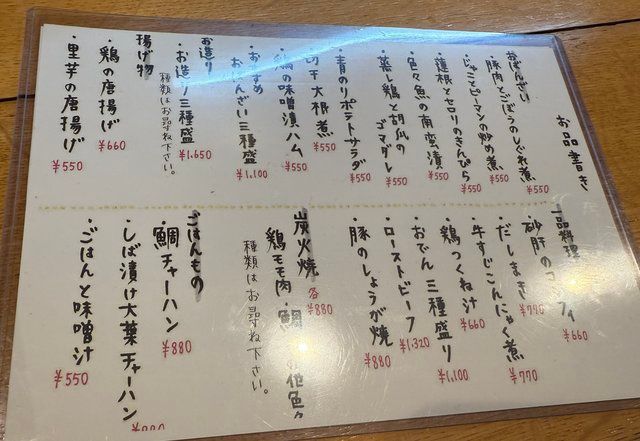 お品書き
おばんざい
・豚肉とごぼうのしぐれ煮 ¥550
・じゃことピーマンの炒め煮 ¥550
・蓮根とセロリのきんぴら ¥550
・色々魚の南蛮漬 ¥550
・蒸し鶏と胡瓜のゴマダレ ¥550
・青のりポテトサラダ ¥550
切干大根煮 ¥550
・鶏の味噌漬ハム ¥550
・おすすめ
おばんざい三種盛 ¥1,100
お造り
・お造り三種盛 ¥1,650
種類はお尋ね下さい。
揚げ物
・鶏の唐揚げ ¥660
・里芋の唐揚げ ¥550
一品料理
砂肝のコ フィ ¥660
・だしまき ¥770
・牛すじこんにゃく煮 ¥770
・鶏つくね汁 ¥660
・おでん三種盛り ¥1,100
・ローストビーフ ¥1,320
・豚のしょうが焼 ¥880
炭火焼 各¥880
鶏モモ肉・鯛 の他色々
種類はお尋ね下さい。
ごはんもの
・鯛チャーハン ¥880
・しば漬け大葉チャーハン
・ごはんと味噌汁 ¥550